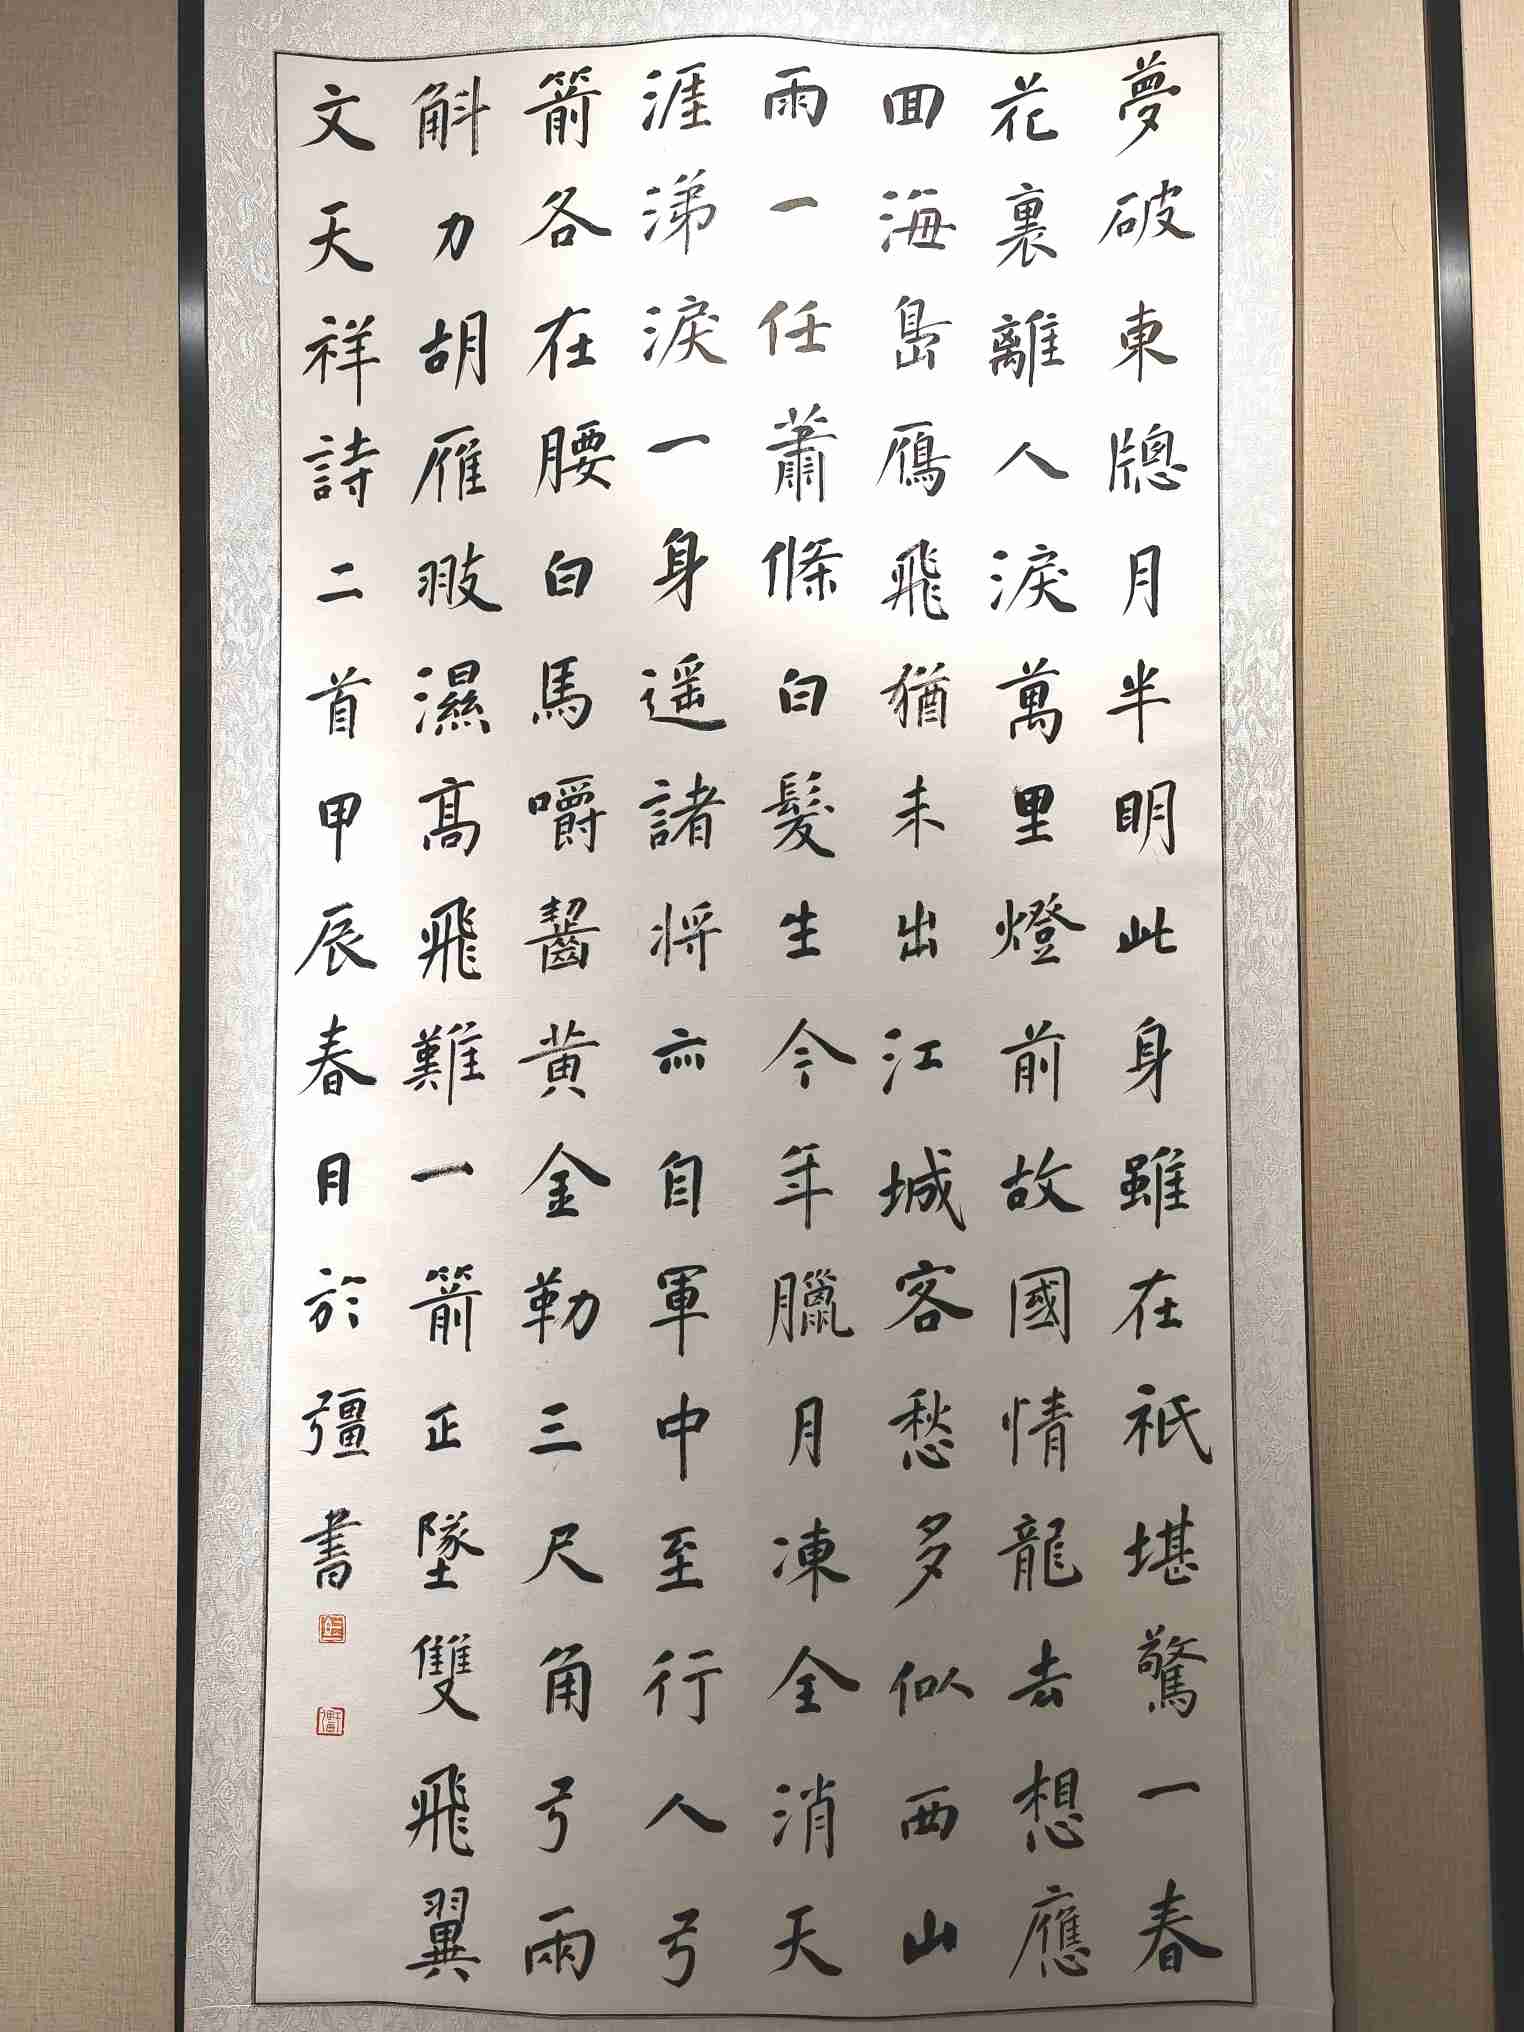 夢破東牕月半明此身雖在祇堪驚一春
花裏離人淚萬里燈前故國情龍去想應
囬海島鴈飛猶未出江城客愁多似西山
雨一任蕭條白髮生今年臘月凍全消天
涯涕淚一身遥諸将亦自軍中至行人弓
箭各在腰白馬嚼齧黄金勒三尺角弓兩
斛力胡雁翅濕高飛難一箭正墜雙飛翼
文天祥詩二首甲辰春月於彊書